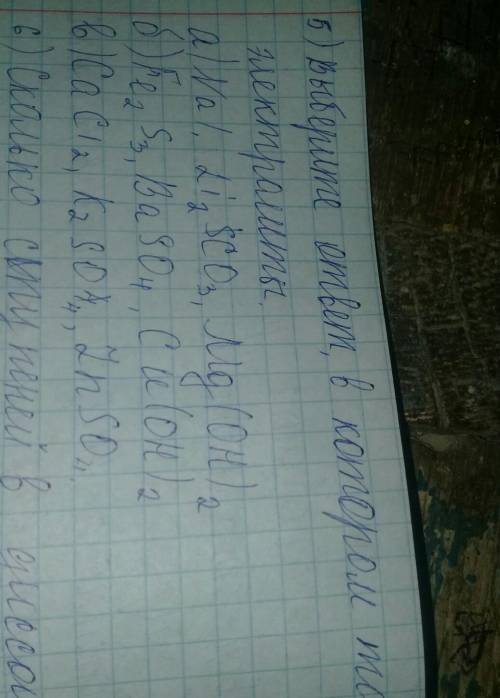 5) Выберите ответ, в котором то
электролиты.
а) NaI, Li₂SO₃, Mg(OH)₂
б) Fe₂S₃, BaSO₄, Cu(OH)₂
в) CaCl₂, K₂SO₄, ZnSO₄.
6) Сколько ступеней в диссоц